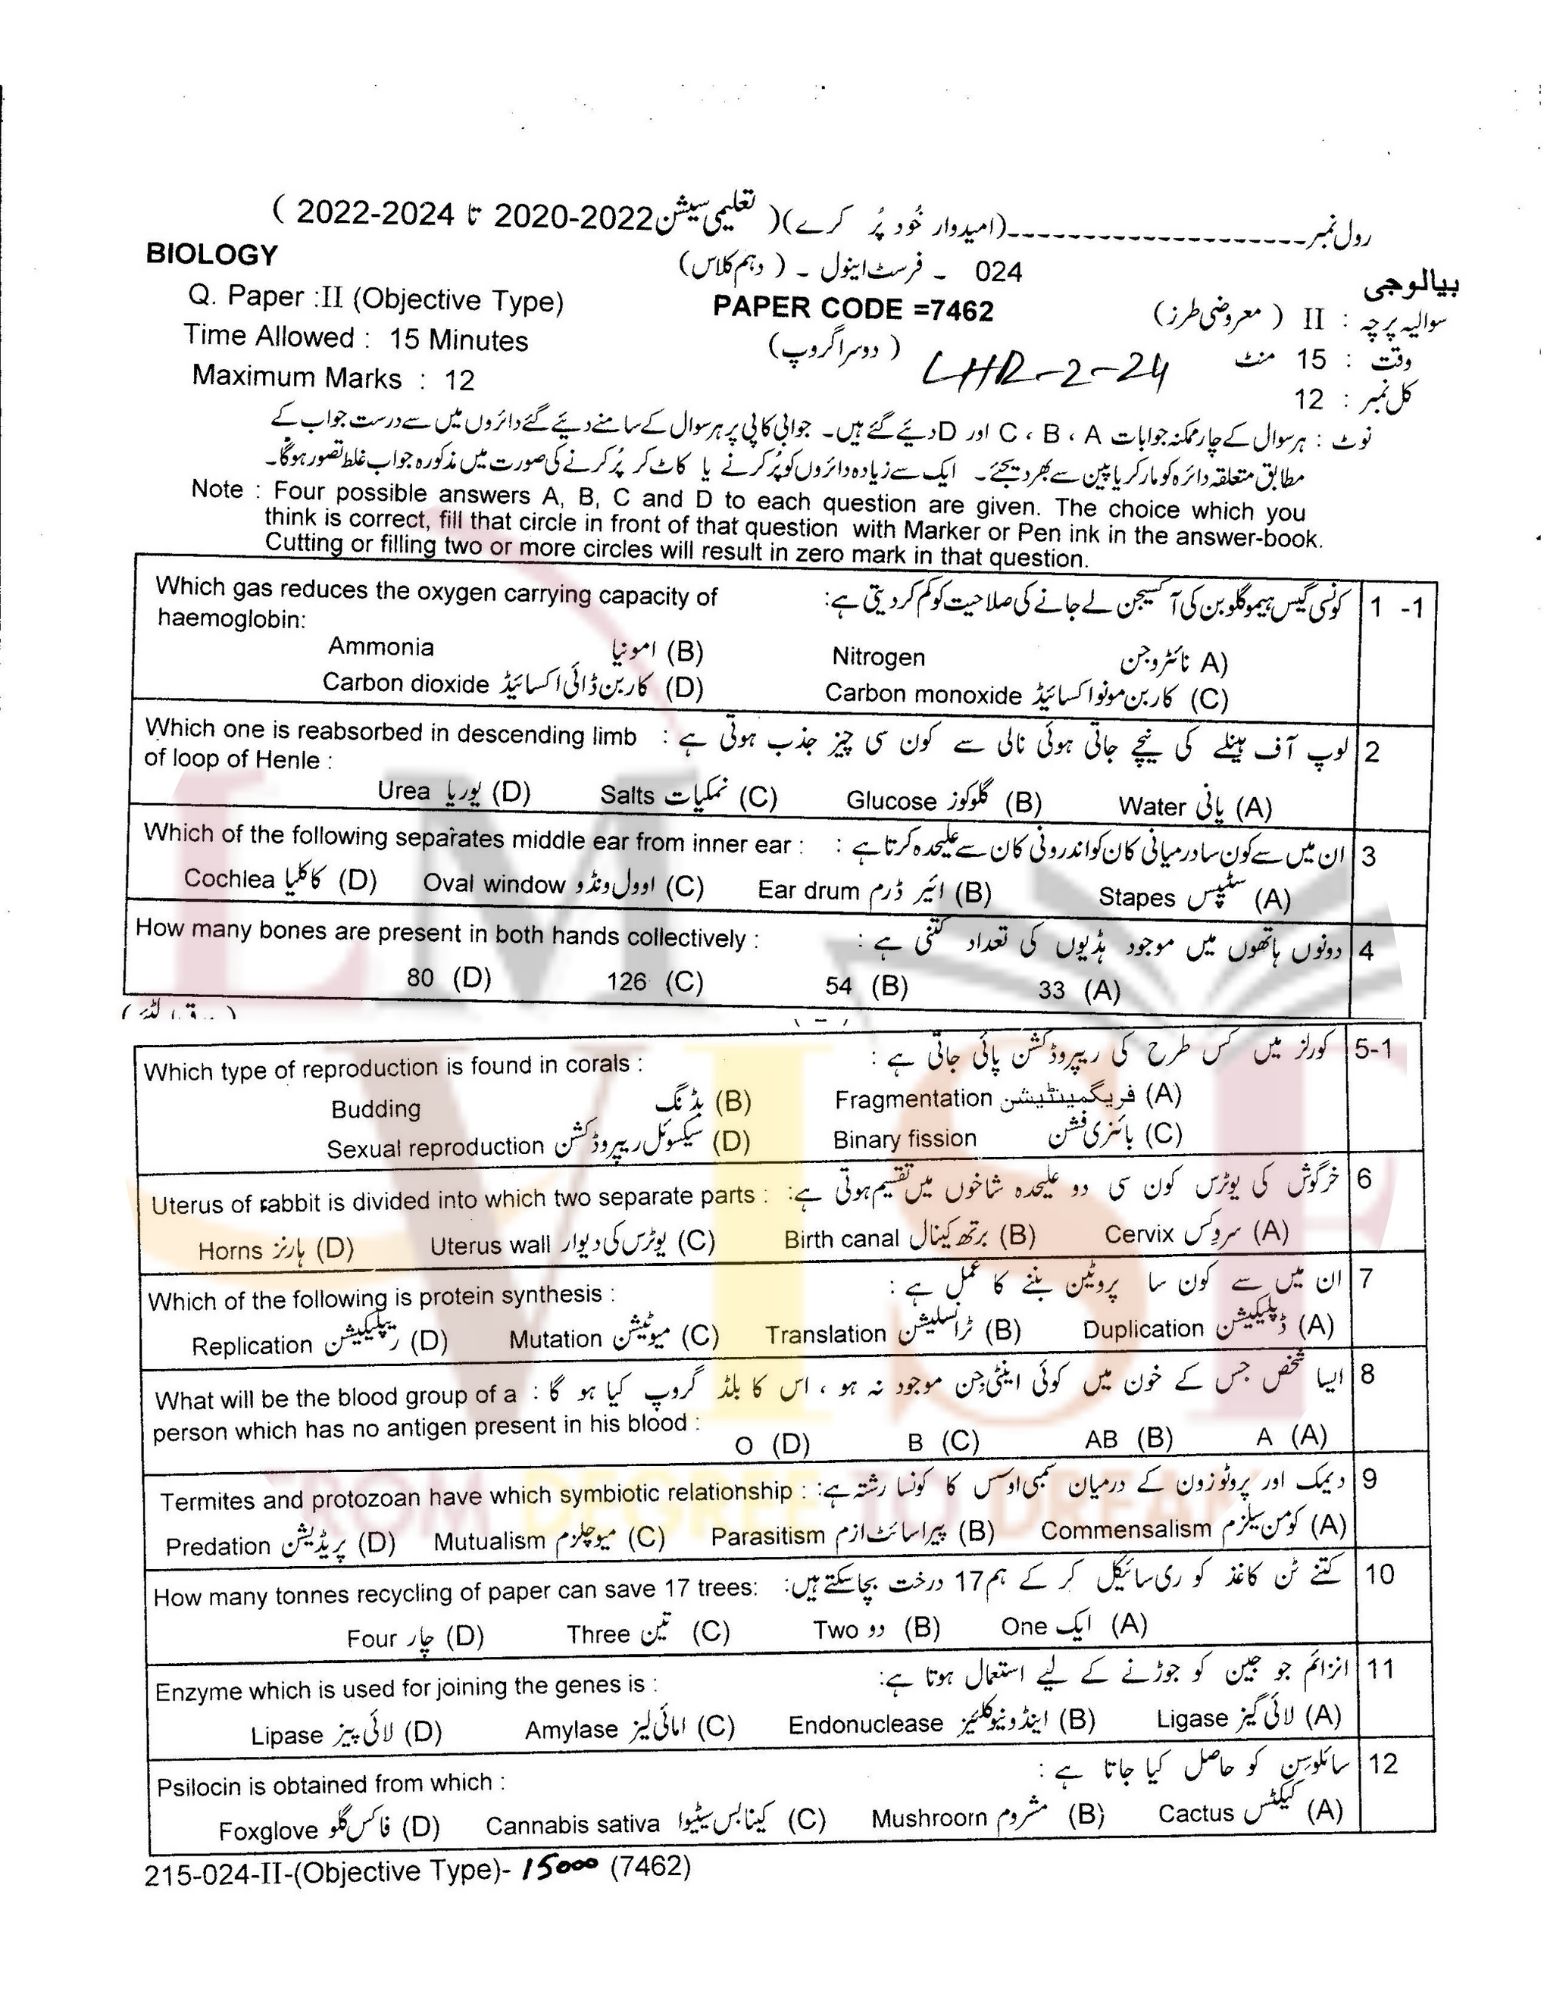 رول نمبر--------------------(امیدوار خُود پُر کرے)( تعلیمی سیشن 2020-2022 تا 2022-2024 )
BIOLOGY
024 - فرسٹ اینول - ( دہم کلاس)
بیالوجی
Q. Paper :II (Objective Type)
PAPER CODE =7462
سوالیہ پرچہ : II ( معروضی طرز)
Time Allowed : 15 Minutes
( دوسرا گروپ)
LHR-2-24
وقت : 15 منٹ
Maximum Marks : 12
کل نمبر : 12
نوٹ : ہر سوال کے چار ممکنہ جوابات A ، B ، C اور D دیئے گئے ہیں۔ جوابی کاپی پر ہر سوال کے سامنے دیئے گئے دائروں میں سے درست جواب کے
مطابق متعلقہ دائرہ کو مارکر یا پین سے بھر دیجئے۔ ایک سے زیادہ دائروں کو پُر کرنے یا کاٹ کر پُر کرنے کی صورت میں مذکورہ جواب غلط تصور ہوگا۔
Note : Four possible answers A, B, C and D to each question are given. The choice which you
think is correct, fill that circle in front of that question with Marker or Pen ink in the answer-book.
Cutting or filling two or more circles will result in zero mark in that question.
Which gas reduces the oxygen carrying capacity of کونسی گیس ہیموگلوبن کی آکسیجن لے جانے کی صلاحیت کو کم کر دیتی ہے: 1 -1
haemoglobin:
Ammonia امونیا (B) Nitrogen نائٹروجن A)
Carbon dioxide کاربن ڈائی اکسائیڈ (D) Carbon monoxide کاربن مونو اکسائیڈ (C)
Which one is reabsorbed in descending limb لوپ آف ہینلے کی نیچے جاتی ہوئی نالی سے کون سی چیز جذب ہوتی ہے : 2
of loop of Henle :
Urea یوریا (D) Salts نمکیات (C) Glucose گلوکوز (B) Water پانی (A)
Which of the following separates middle ear from inner ear : ان میں سے کون سا درمیانی کان کو اندرونی کان سے علیحدہ کرتا ہے : 3
Cochlea کاکلیا (D) Oval window اوول ونڈو (C) Ear drum ائیر ڈرم (B) Stapes سٹیپس (A)
How many bones are present in both hands collectively : دونوں ہاتھوں میں موجود ہڈیوں کی تعداد کتنی ہے : 4
80 (D) 126 (C) 54 (B) 33 (A)
Which type of reproduction is found in corals : کورلز میں کس طرح کی ریپروڈکشن پائی جاتی ہے : 5-1
Budding بڈنگ (B) Fragmentation فریگمینٹیشن (A)
Sexual reproduction سیکسوئل ریپروڈکشن (D) Binary fission بائنری فشن (C)
Uterus of rabbit is divided into which two separate parts : خرگوش کی یوٹرس کون سی دو علیحدہ شاخوں میں تقسیم ہوتی ہے: 6
Horns ہارنز (D) Uterus wall یوٹرس کی دیوار (C) Birth canal برتھ کینال (B) Cervix سروکس (A)
Which of the following is protein synthesis : ان میں سے کون سا پروٹین بننے کا عمل ہے : 7
Replication ریپلیکیشن (D) Mutation میوٹیشن (C) Translation ٹرانسلیشن (B) Duplication ڈپلیکیشن (A)
What will be the blood group of a ایسا شخص جس کے خون میں کوئی اینٹی جن موجود نہ ہو ، اس کا بلڈ گروپ کیا ہو گا : 8
person which has no antigen present in his blood :
O (D) B (C) AB (B) A (A)
Termites and protozoan have which symbiotic relationship : دیمک اور پروٹوزون کے درمیان سمبی اوسس کا کونسا رشتہ ہے: 9
Predation پریڈیشن (D) Mutualism میوچلزم (C) Parasitism پیراسائٹ ازم (B) Commensalism کومن سیلزم (A)
How many tonnes recycling of paper can save 17 trees: کتنے ٹن کاغذ کو ری سائیکل کر کے ہم 17 درخت بچا سکتے ہیں: 10
Four چار (D) Three تین (C) Two دو (B) One ایک (A)
Enzyme which is used for joining the genes is : انزائم جو جین کو جوڑنے کے لیے استعمال ہوتا ہے: 11
Lipase لائی پیز (D) Amylase امائی لیز (C) Endonuclease اینڈونیوکلئیز (B) Ligase لائی گیز (A)
Psilocin is obtained from which : سائلوسِن کو حاصل کیا جاتا ہے : 12
Foxglove فاکس گلو (D) Cannabis sativa کینابس سیٹیوا (C) Mushroorn مشروم (B) Cactus کیکٹس (A)
215-024-II-(Objective Type)- 15000 (7462)
LM
VISE
FROM DEGREE TO DREAM